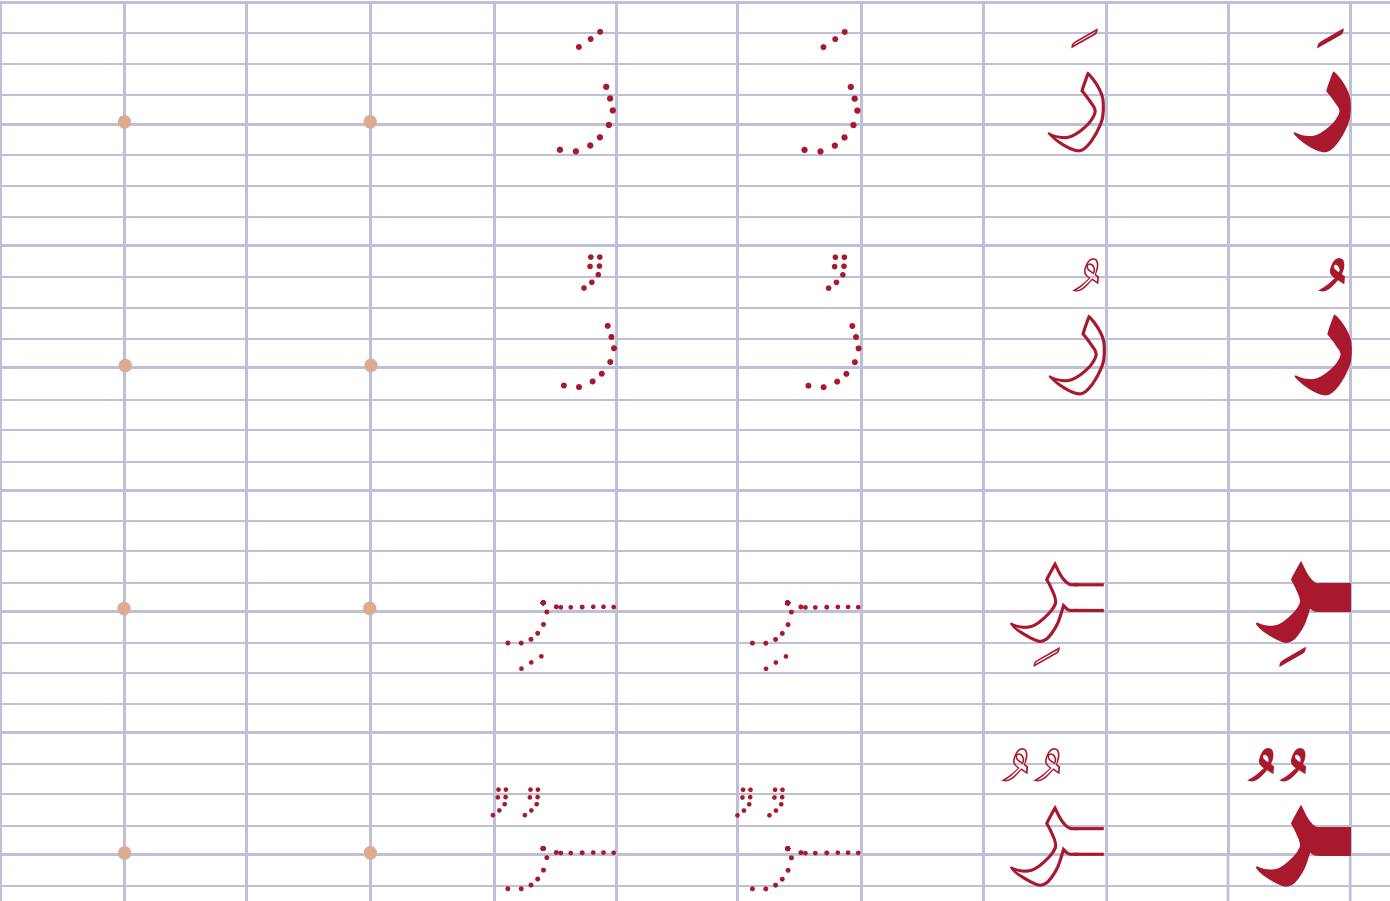 رَ رَ رَ رَ
رُ رُ رُ رُ
ـرِ ـرِ ـرِ ـرِ
ـرٌ ـرٌ ـرٌ ـرٌ